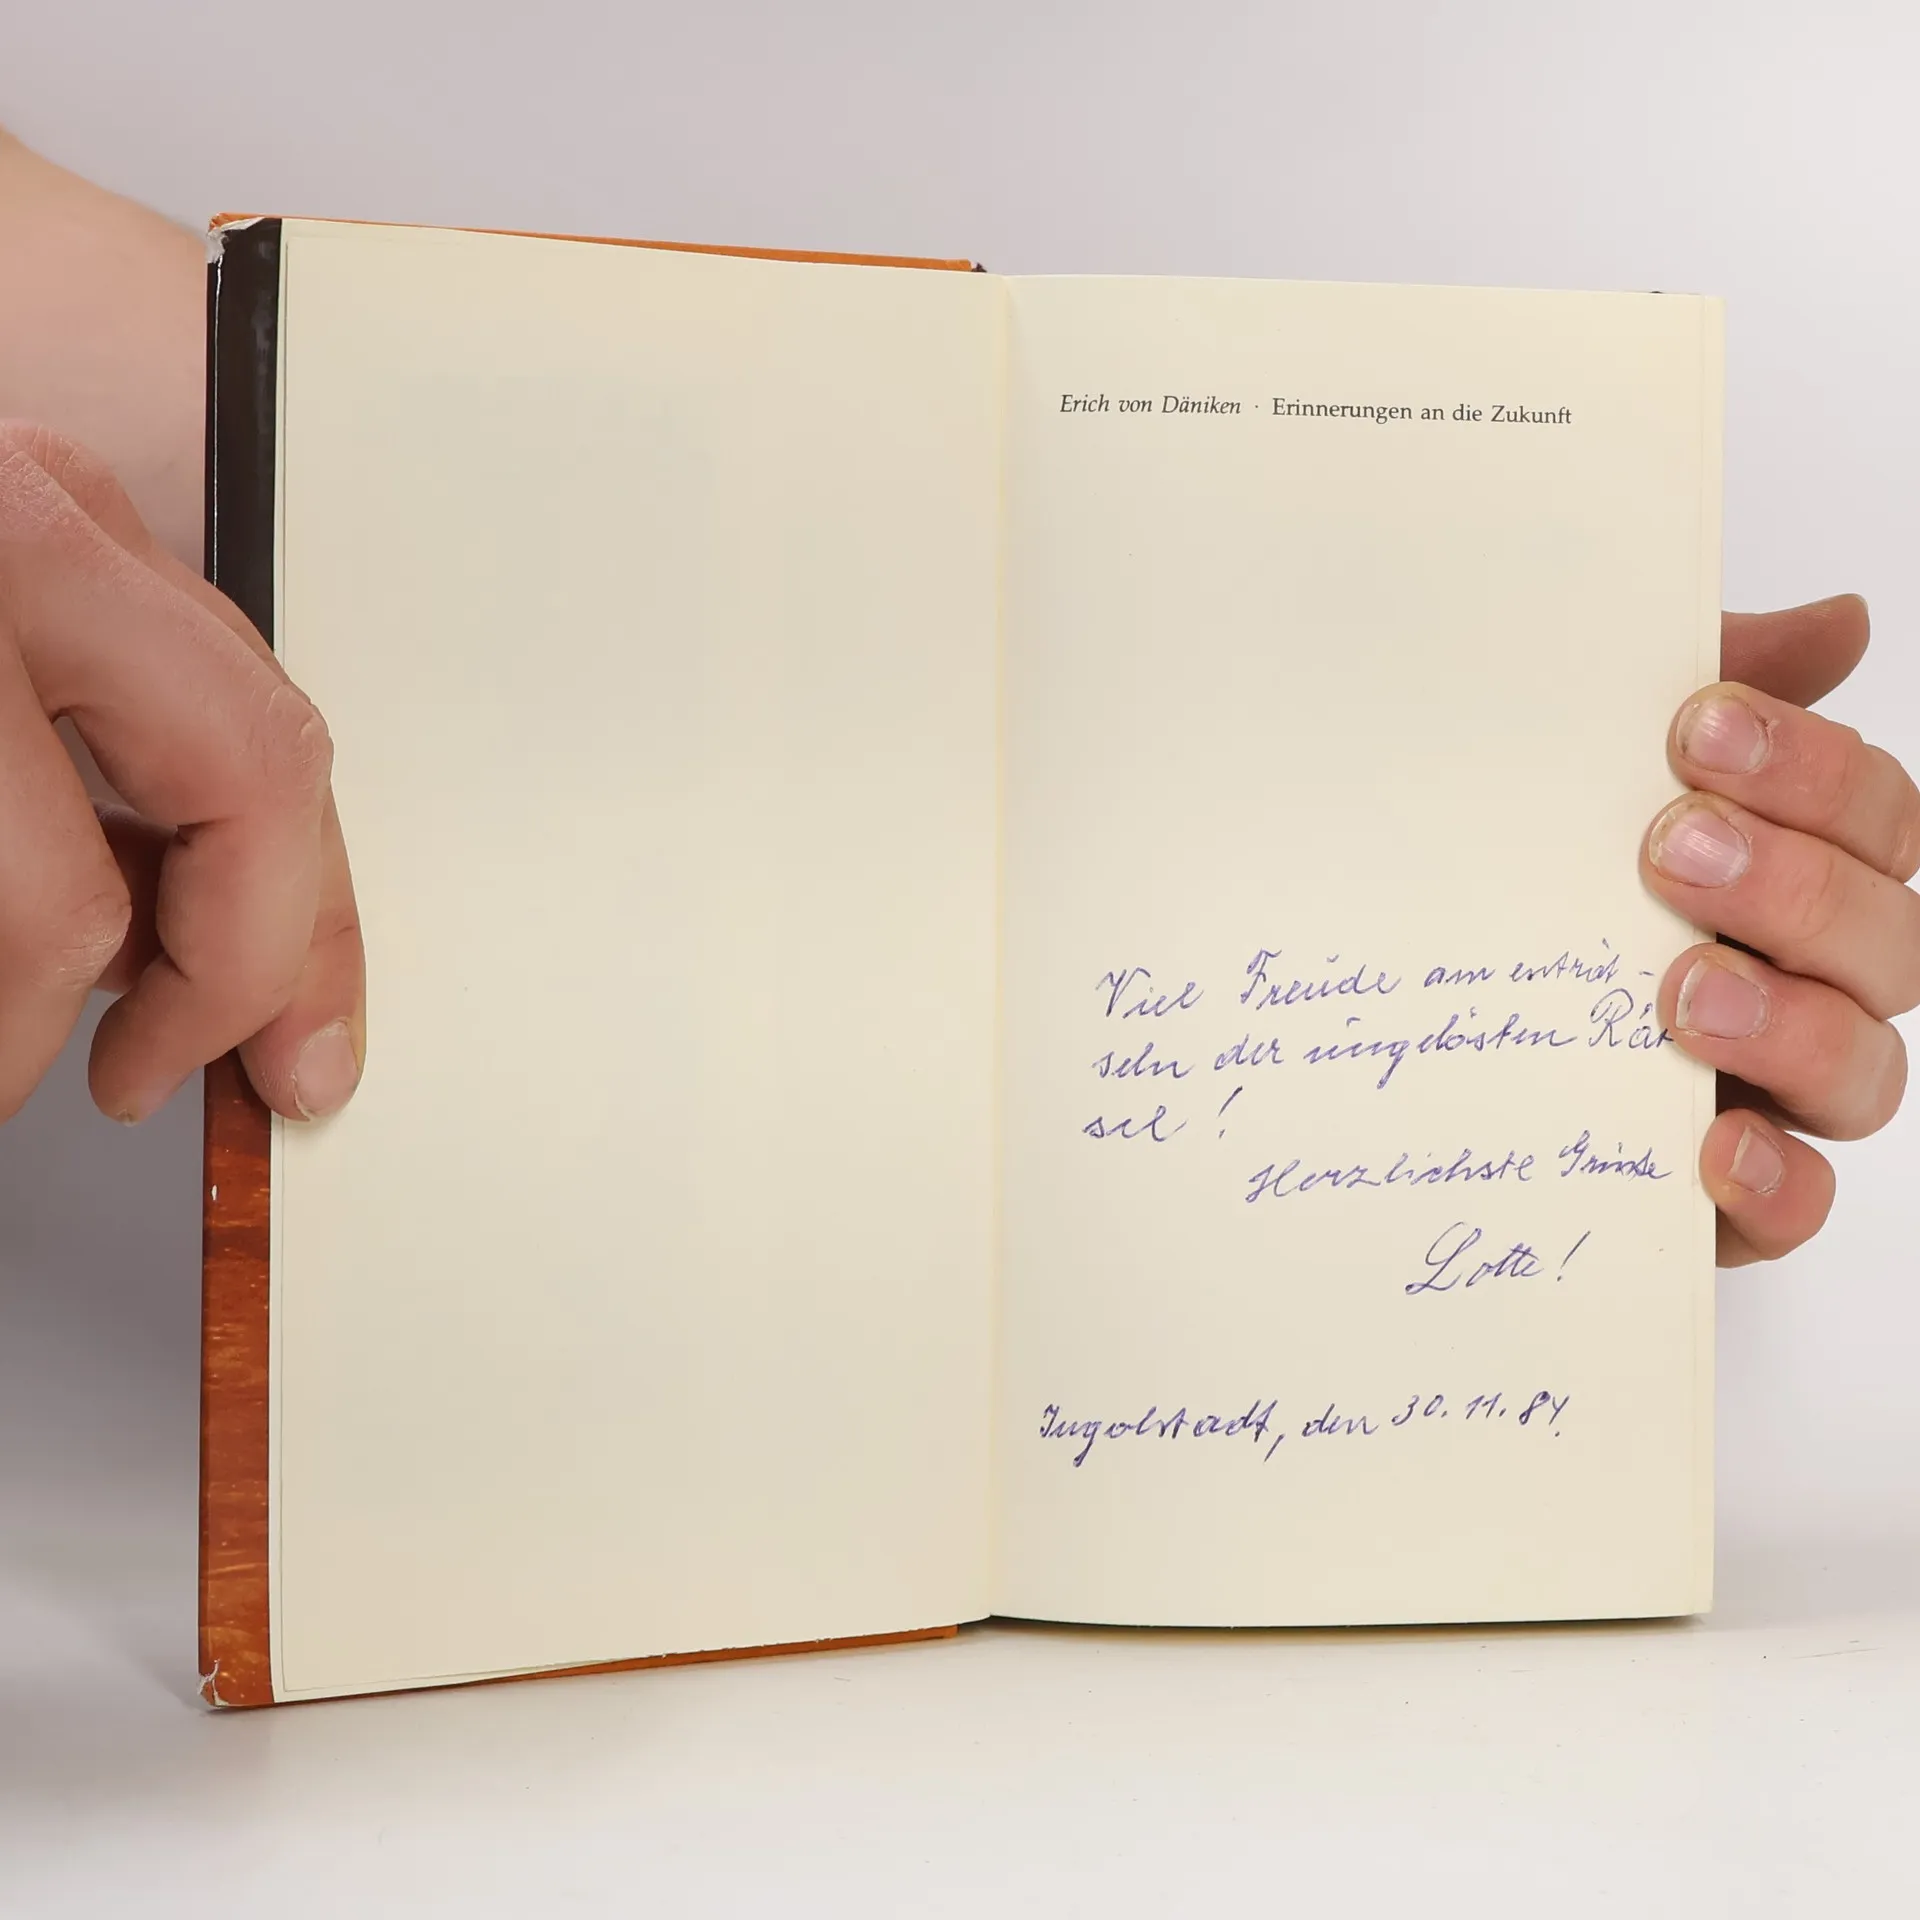 Erich von Däniken · Erinnerungen an die Zukunft
Viel Freude am enträt-
seln der ungelösten Rät
sel!
Herzlichste Grüße
Lotte!
Ingolstadt, den 30.11.84.